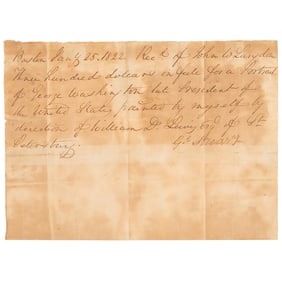 Boston Jany 15. 1822. Recd of John W Langdon
Three hundred dollars in full for a Portrait
of George Washington late President of
the United States, painted by myself by
direction of William D. Lewis Esq of St
Petersburg.
G. Stuart